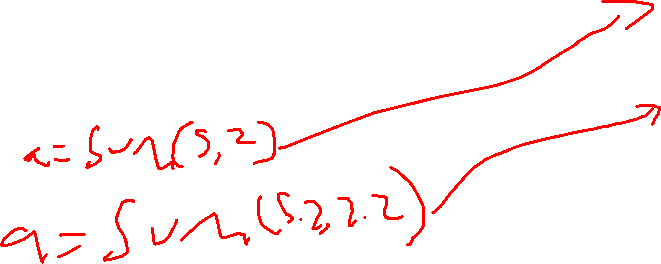 a=Sum(5,2)
a=Sum(5.2,2.2)